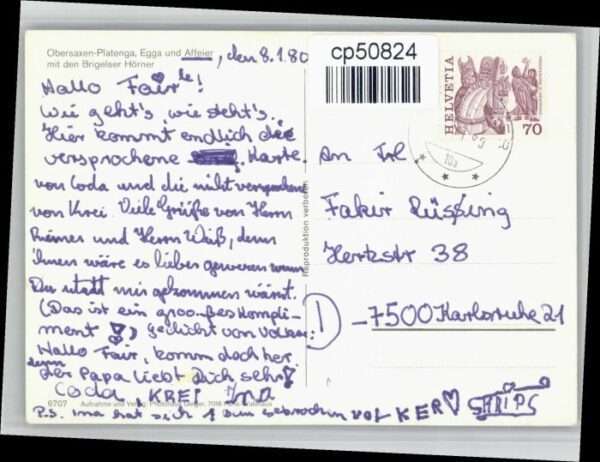 Obersaxen-Platenga, Egga und Affeier
mit den Brigelser Hörner
, den 8.1.80
Hallo Fair le!
Wie geht's, wie steht's.
Hier kommt endlich die
versprochene Karte
von Coda und die nicht versprochene
von Krei. Viele Grüße von Herrn
Riemer und Herrn Weiß, denn
ihnen wäre es lieber gewesen wenn
Du statt mir gekommen wärst.
(Das ist ein grooßes Kompli-
ment !) von Volker:
Hallo Fair, komm doch her
denn
der Papa liebt Dich sehr!
Coda, KREI Ina
P.S. Ina hat sich 1 gebrochen VOLKER SHRIPS
6707 Aufnahme und Verlag:
Reproduktion verboten
cp50824
HELVETIA
70
An Frl
Fakir Rüssing
Hertzstr 38
D -7500 Karlsruhe 21